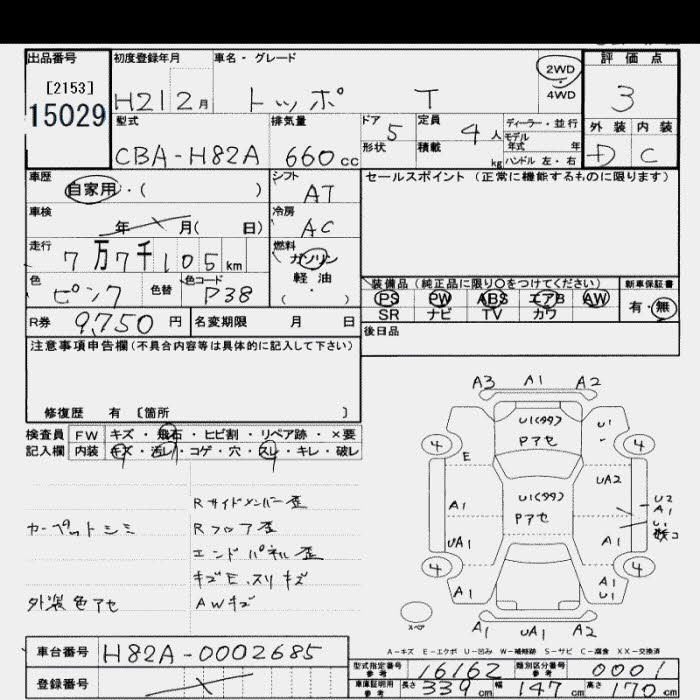 出品番号 初度登録年月 車名・グレード 評価点
[2153] 2WD
15029 H21 2月 トッポ T 4WD 3
型式 排気量 ドア 定員 ディーラー・並行 外装 内装
5 4人 モデル年式 年
CBA-H82A 660cc 形状 積載 kg ハンドル 左・右 D C
車歴 シフト セールスポイント(正常に機能するものに限ります)
自家用・( ) AT
車検 冷房
年 月( 日) AC
走行 燃料
7万7千105km ガソリン
色 色替 色コード 軽油 装備品(純正品に限り○をつけてください) 新車保証書
ピンク P38 (・) PS PW ABS エアB AW 有・無
SR ナビ TV カワ
R券 9,750円 名変期限 月 日 後日品
注意事項申告欄(不具合内容等は具体的に記入して下さい)
修復歴 有 〔箇所 〕
検査員 FW キズ・飛石・ヒビ割・リペア跡・×要
記入欄 内装 キズ・汚レ・コゲ・穴・スレ・キレ・破レ
Rサイドメンバー歪
カーペットシミ Rフロア歪
エンドパネル歪
キズE、スリキズ
外装色アセ AWキズ
A3 A1 A2
U1(99) U1
Pアセ
4 4
E
UA2
U1(99)
A1 Pアセ U2
A1
U1
UA1 A1
4 4
A1 A1
U1
スペア
A1 UA1 A1
A-キズ E-エクボ U-凹み W-補修跡 S-サビ C-腐食 XX-交換済
車台番号 H82A-0002685
登録番号
型式指定番号 参考 16162 類別区分番号 参考 0001
車庫証明用 参考 長さ 339cm 幅 147cm 高さ 170cm